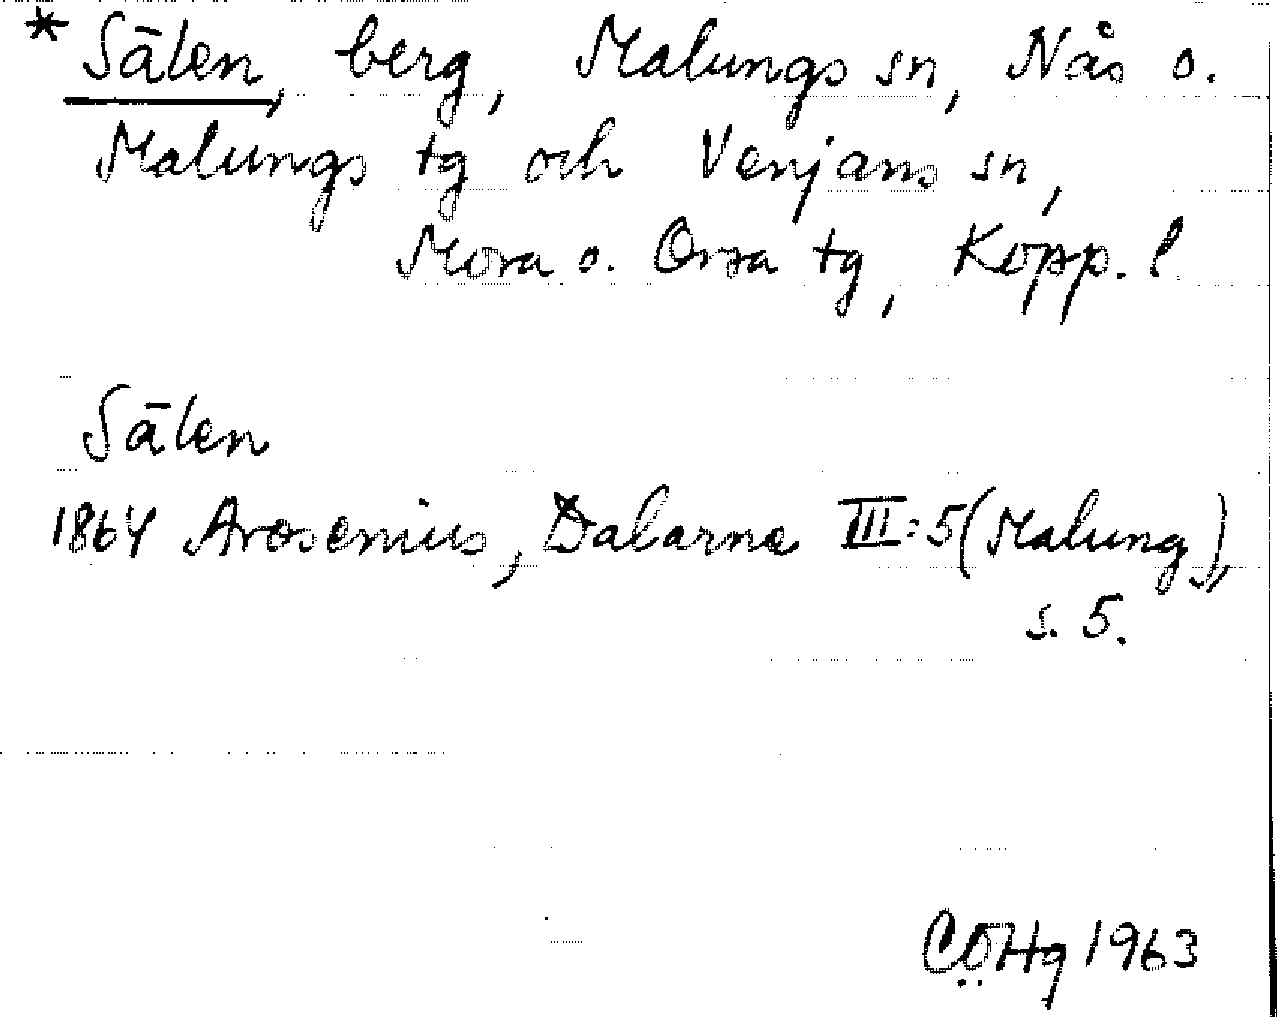 * Sälen, berg, Malungs sn, Nås o.
Malungs tg och Venjans sn,
Mora o. Orsa tg, Kopp. l.
Sälen
1864 Arosenius, Dalarne III:5 (Malung),
s. 5.
CÖHg 1963